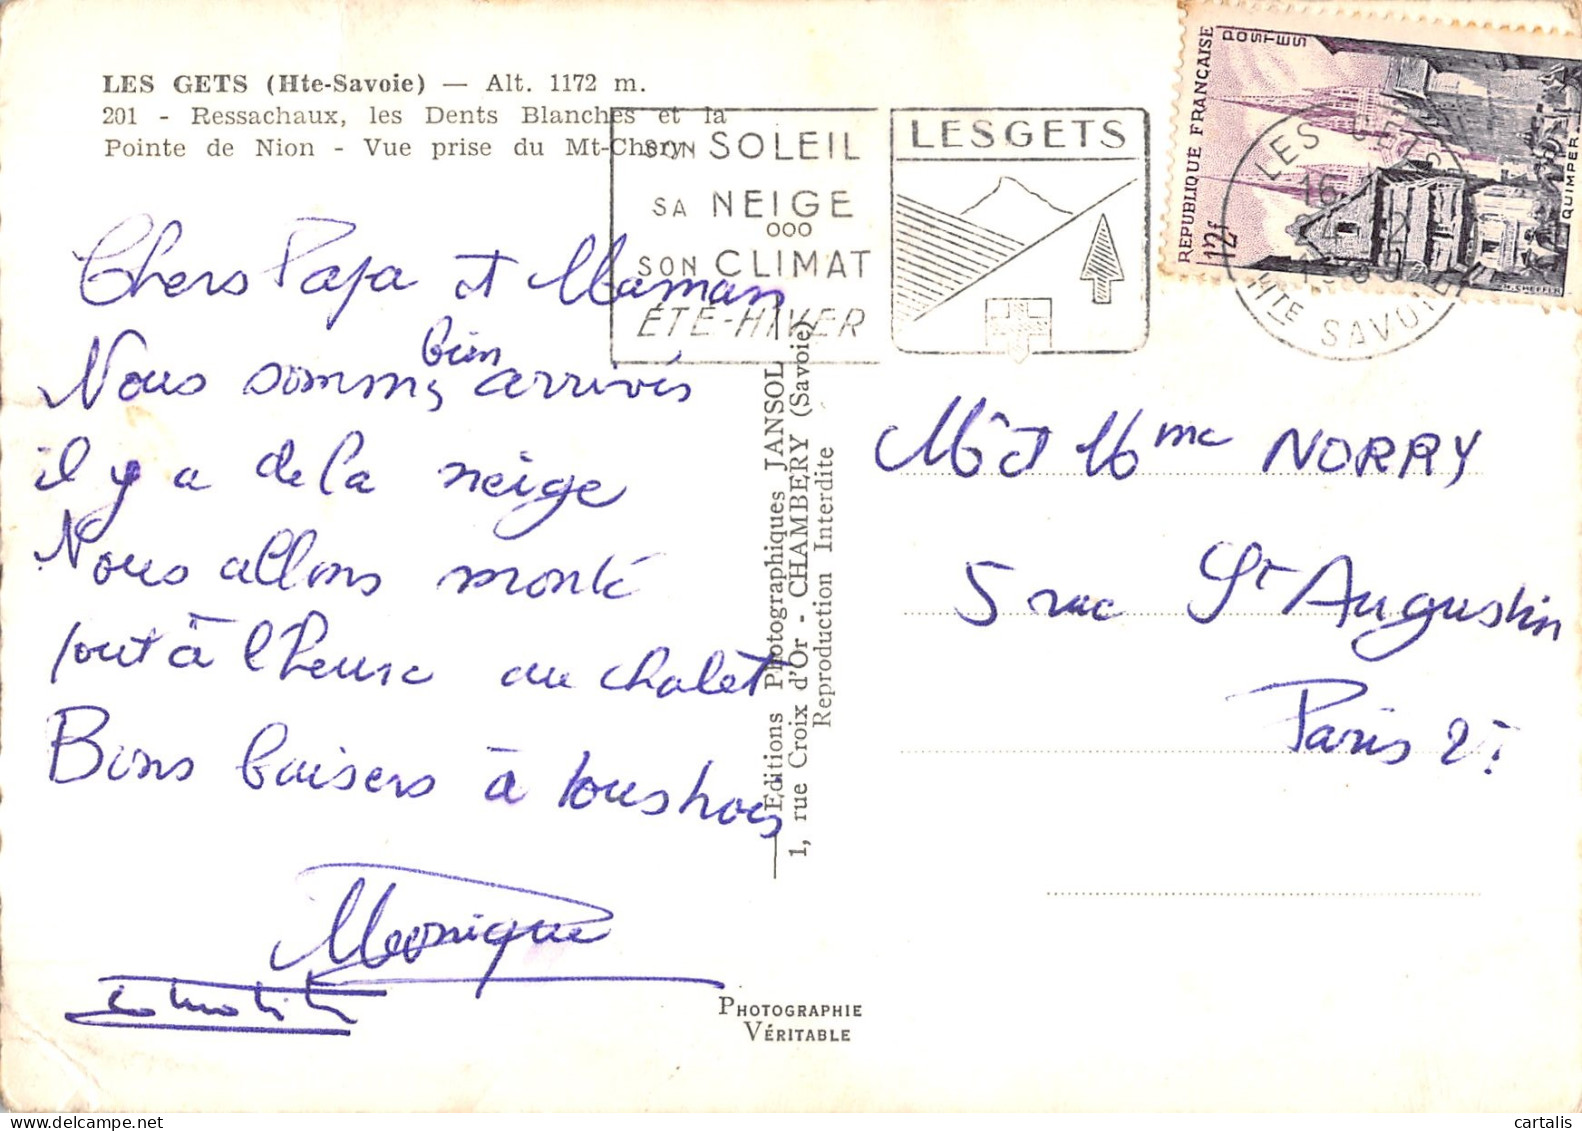 LES GETS (Hte-Savoie) — Alt. 1172 m.
201 - Ressachaux, les Dents Blanches et la
Pointe de Nion - Vue prise du Mt-Chery.
SON SOLEIL
SA NEIGE
OOO
SON CLIMAT
ÉTÉ-HIVER
LES GETS
REPUBLIQUE FRANÇAISE
POSTES
QUIMPER
12f
LES GETS
16
HTE SAVOIE
Chers Papa et Maman
Nous sommes bien arrivés
il y a de la neige
Nous allons monté
tout à l'heure au chalet
Bons baisers à tous
Monique
Editions Photographiques JANSOL
1, rue Croix d'Or - CHAMBERY (Savoie)
Reproduction Interdite
PHOTOGRAPHIE
VÉRITABLE
Mr et Mme NORRY
5 rue St Augustin
Paris 2e
cartalis